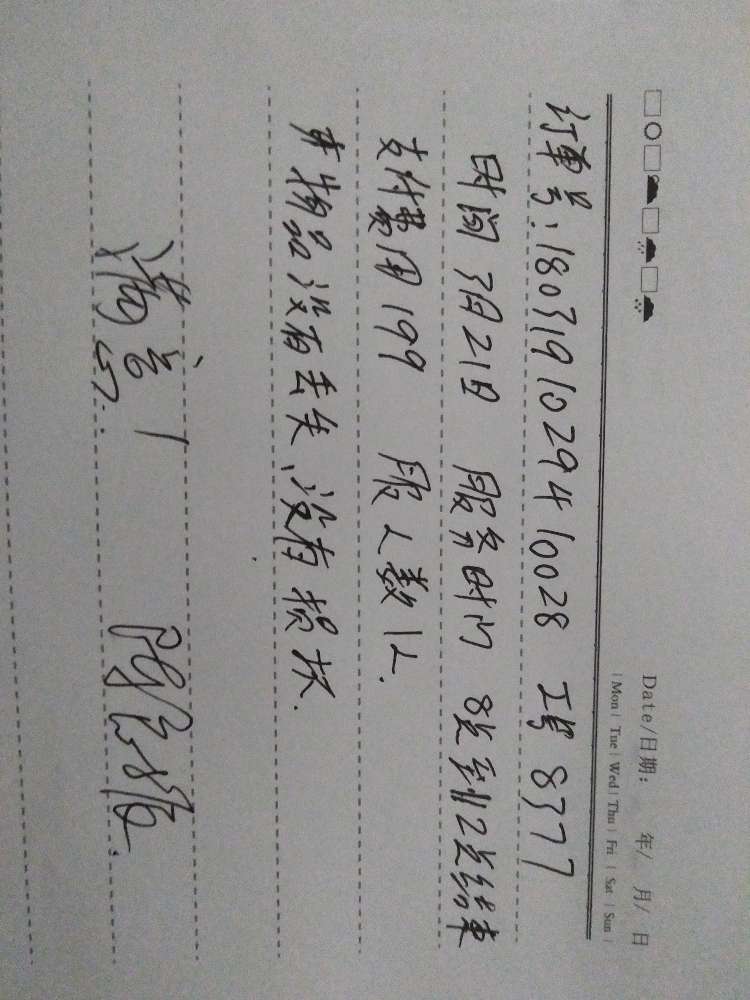 Date/日期: 年/ 月/ 日
| Mon | Tue | Wed | Thu | Fri | Sat | Sun |
订单号:180719102941 0028 工号 8377
时间 7月21日 服务时间 8点到12点结束
支付费用199 服人数1人.
井物品没有丢失、没有损坏.
满意!